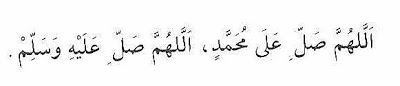 اَللَّهُمَّ صَلِّ عَلَى مُحَمَّدٍ، اَللَّهُمَّ صَلِّ عَلَيْهِ وَسَلِّمْ.